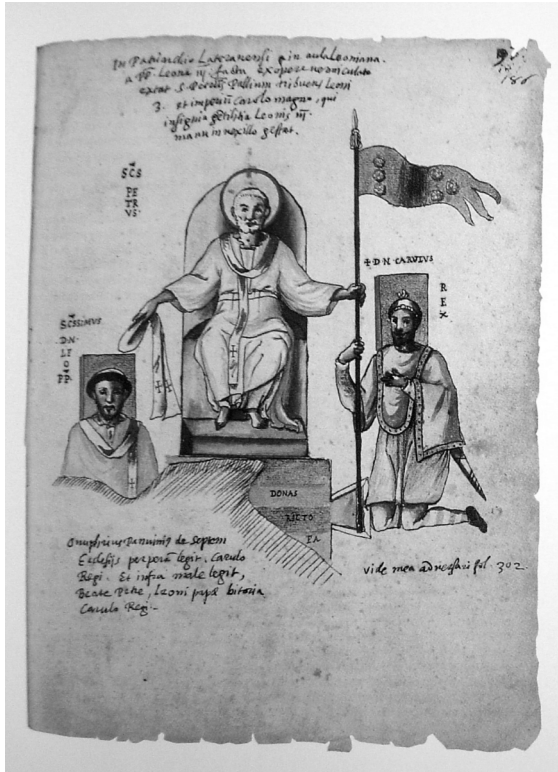 In Patriarchio Lateranensi in aula Leoniana.
a PP. Leone iij. facta ex opere vermiculato
extat S. Petrus Pallium tribuens Leoni
3. et imperiū Carolo magno, qui
insignia gẽtilitia Leonis iij.
manu in vexillo gestat.
186
SCS
PE
TR
VS.
+ D N CARVLVS
RE
X
SCSSIMVS
D.N.
LE
O
PP
DONAS
RICTO
PA
Onuphrius Panuinius de Septem
Ecclesijs perperā legit, Carulo
Regi. Et infra male legit,
Beate Petre, Leoni papæ bitoria
Carulo Regi.
vide mea adversari fol. 302